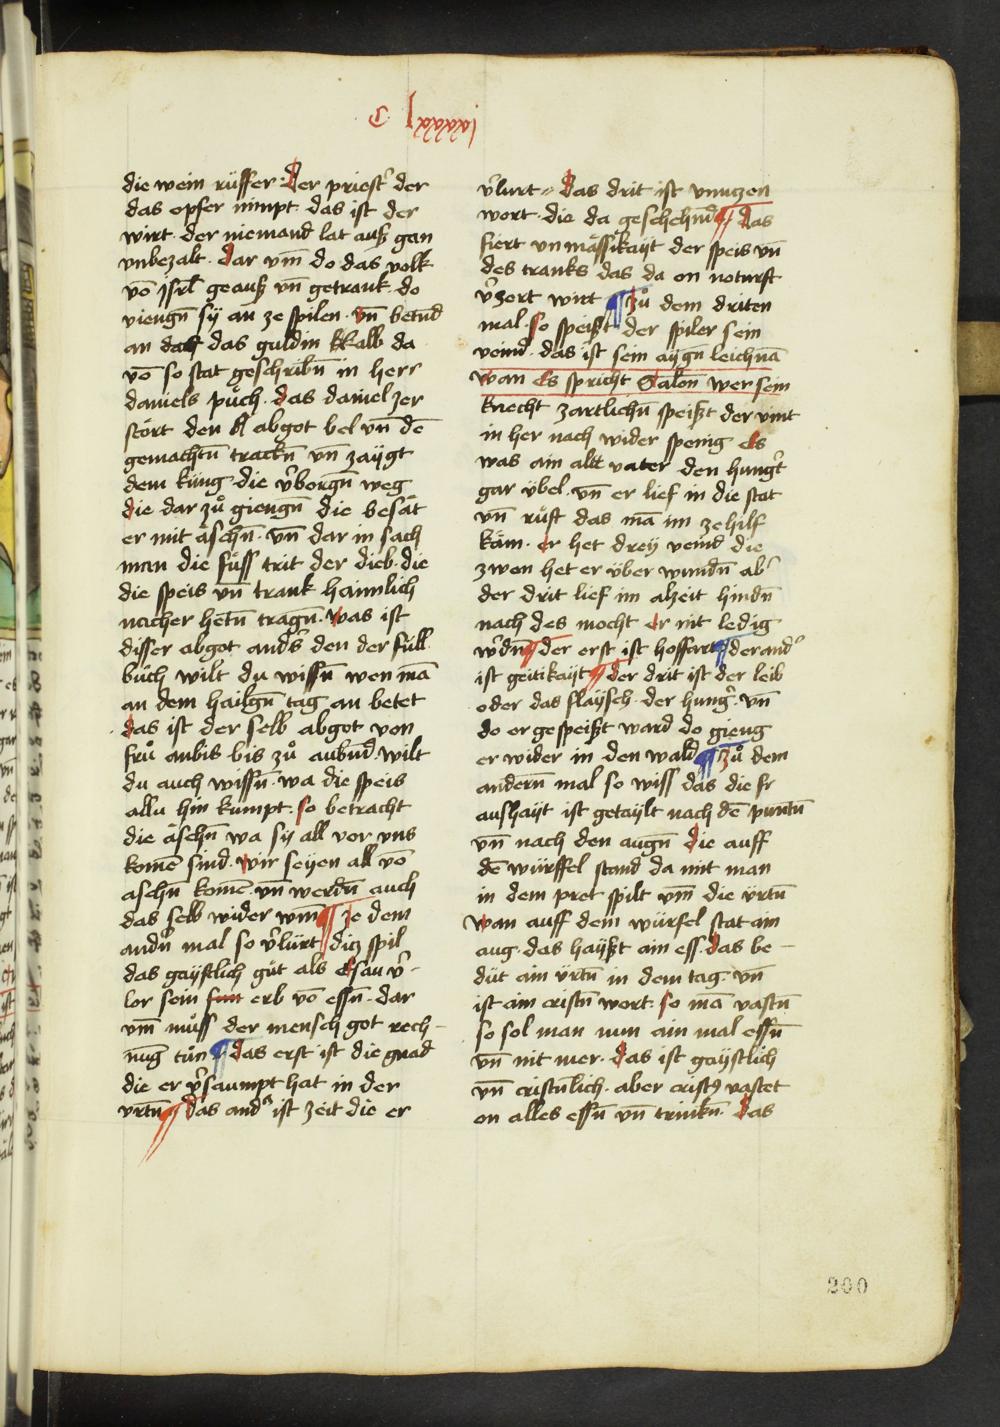 C lxxxxxj
die wein rüffer. Der priest͛ der
das opfer nimpt. das ist der
wirt. der niemand lat auß gan
vnbezalt. dar vm̄ do das volk
vō jsrl̄ geauß vn̄ getrank. do
viengn̄ sÿ an ze spilen. vn̄ betnd̄
an das guldin kalb da
vō so stat geschribn̄ in herr
daniels půch. das daniel zer
stört den abgot bel vn̄ dē
gemachtn̄ trackn̄ vn̄ zaÿgt
dem küng. die v͛borgn̄ weg
die dar zů giengn̄ die besät
er mit äschn̄. vn̄ dar in sach
man die füss trit der dieb. die
die speis vn̄ trank haimlich
nacher hetn̄ tragn̄. was ist
disser abgot and͛s den der füll
buch wilt du wissn̄ wen mā
an dem hailgn̄ tag an betet
das ist der selb abgot von
frů anbis bis zů aubnd̄. wilt
du auch wissn̄. wa die speis
allu hin kumpt. so betracht
die äschn̄ wa sÿ all vor vns
komē sind. wir seÿen all vō
aschn̄ komē. vn̄ werdn̄ auch
das selb wider wm̄ ¶ ze dem
andn̄ mal so v͛lürt diz spil
das gaÿstlich gůt als esau v͛-
lor sein erb vō essn̄. dar
vm̄ můss der mensch got rech-
nuḡ tůn ¶ das erst ist die gnad
die er v͛saumpt hat in der
vrtn̄ ¶ das and͛ ist zeit die er
v͛lurt= das drit ist vnnuzen
wort. die da geschehnd̄ ¶ das
fiert vn mässikaÿt der speis vn̄
des tranks das da on noturft
v͛zert wirt ¶ Zů dem driten
mal. so speißt der spiler sein
veind. das ist sein aÿgn̄ leichnā
wan es spricht Salōn wer sein
knecht zartlichn̄ speißt der vint
in her nach wider spenig es
was ain alt vater den hung͛t
gar übel. vn̄ er lief in die stat
vn̄ růft das mā im ze hilf
käm. er het dreÿ veind die
zwen het er über wundn̄ ab͛
der drit lief im alzeit hindn̄
nach des mocht er nit ledig
w͛dn̄ ¶ der erst ist hoffart ¶ der and͛
ist geitikaÿt ¶ der drit ist der leib
oder das flaÿsch. der hung͛. vn̄
do er gespeißt ward do gieng
er wider in den wald ¶ Zů dem
andern̄ mal so wiss das die fr
aushaÿt ist getaÿlt nach dē puntn̄
vn̄ nach den augn̄ die auff
dē würffel stand da mit man
in dem pret spilt vm̄ die ürtn̄
wan auff dem würfel stat ain
aug. das haÿßt ain ess. das be-
düt ain ürtn̄ in dem tag. vn̄
ist ain cristn̄ wort. so mā vastn̄
so sol man nun ain mal essn̄
vn̄ nit mer. das ist gaÿstlich
vn̄ cristn̄lich. aber crist9 vastet
on alles essn̄ vn̄ trinkn̄. das
200